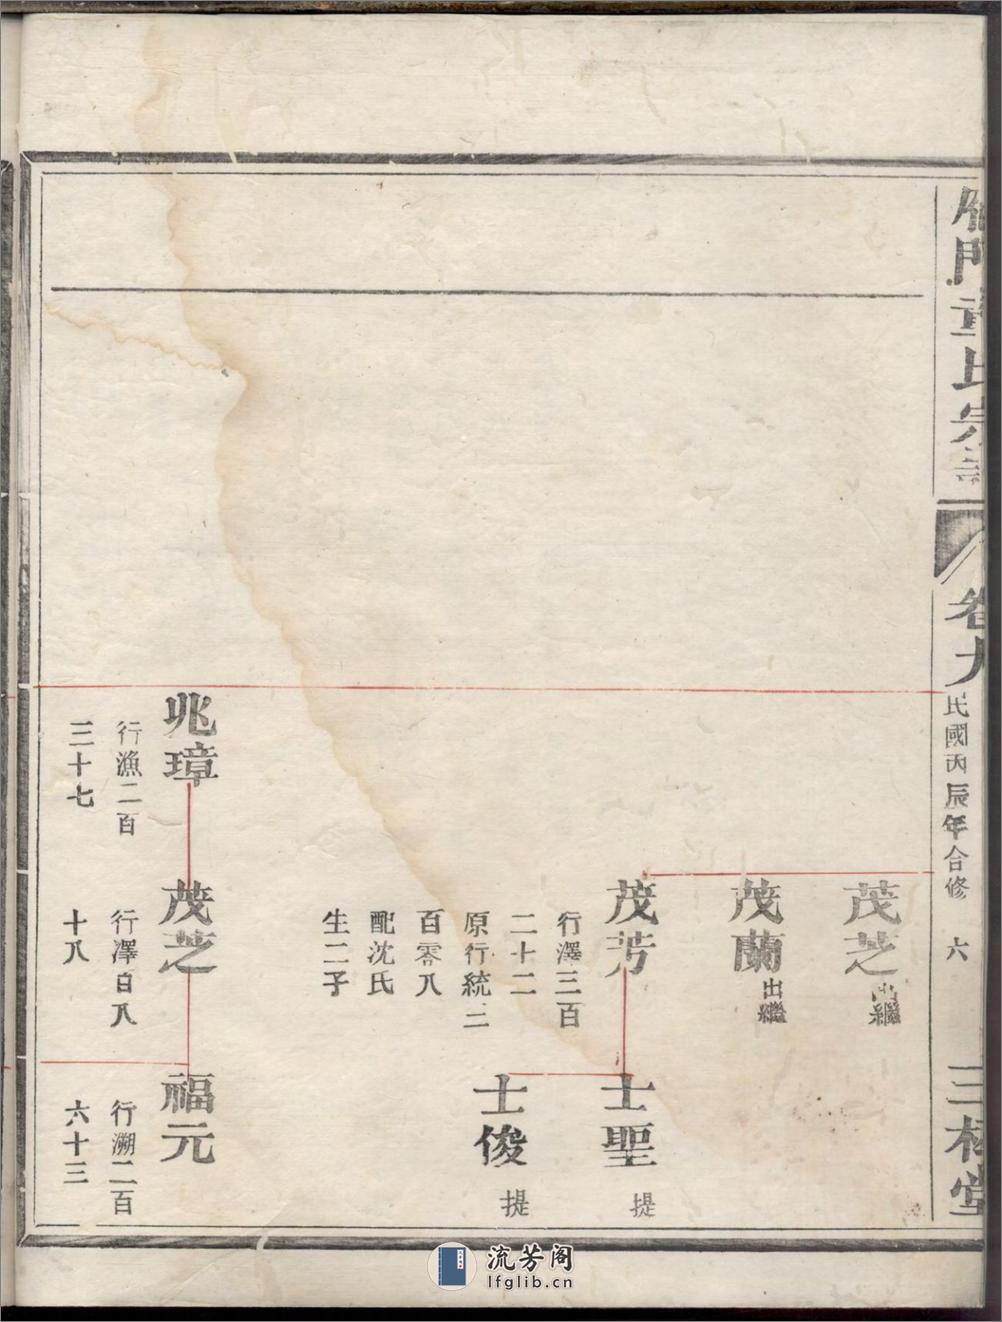 雁門童氏宗譜
卷九
民國丙辰年合修
六
三槐堂
茂芝
出繼
茂蘭
出繼
茂芳
行澤三百
二十二
原行統二
百零八
配沈氏
生二子
士聖
提
士俊
提
兆璋
行漁二百
三十七
茂芝
行澤百八
十八
福元
行溯二百
六十三
流芳阁
lfglib.cn